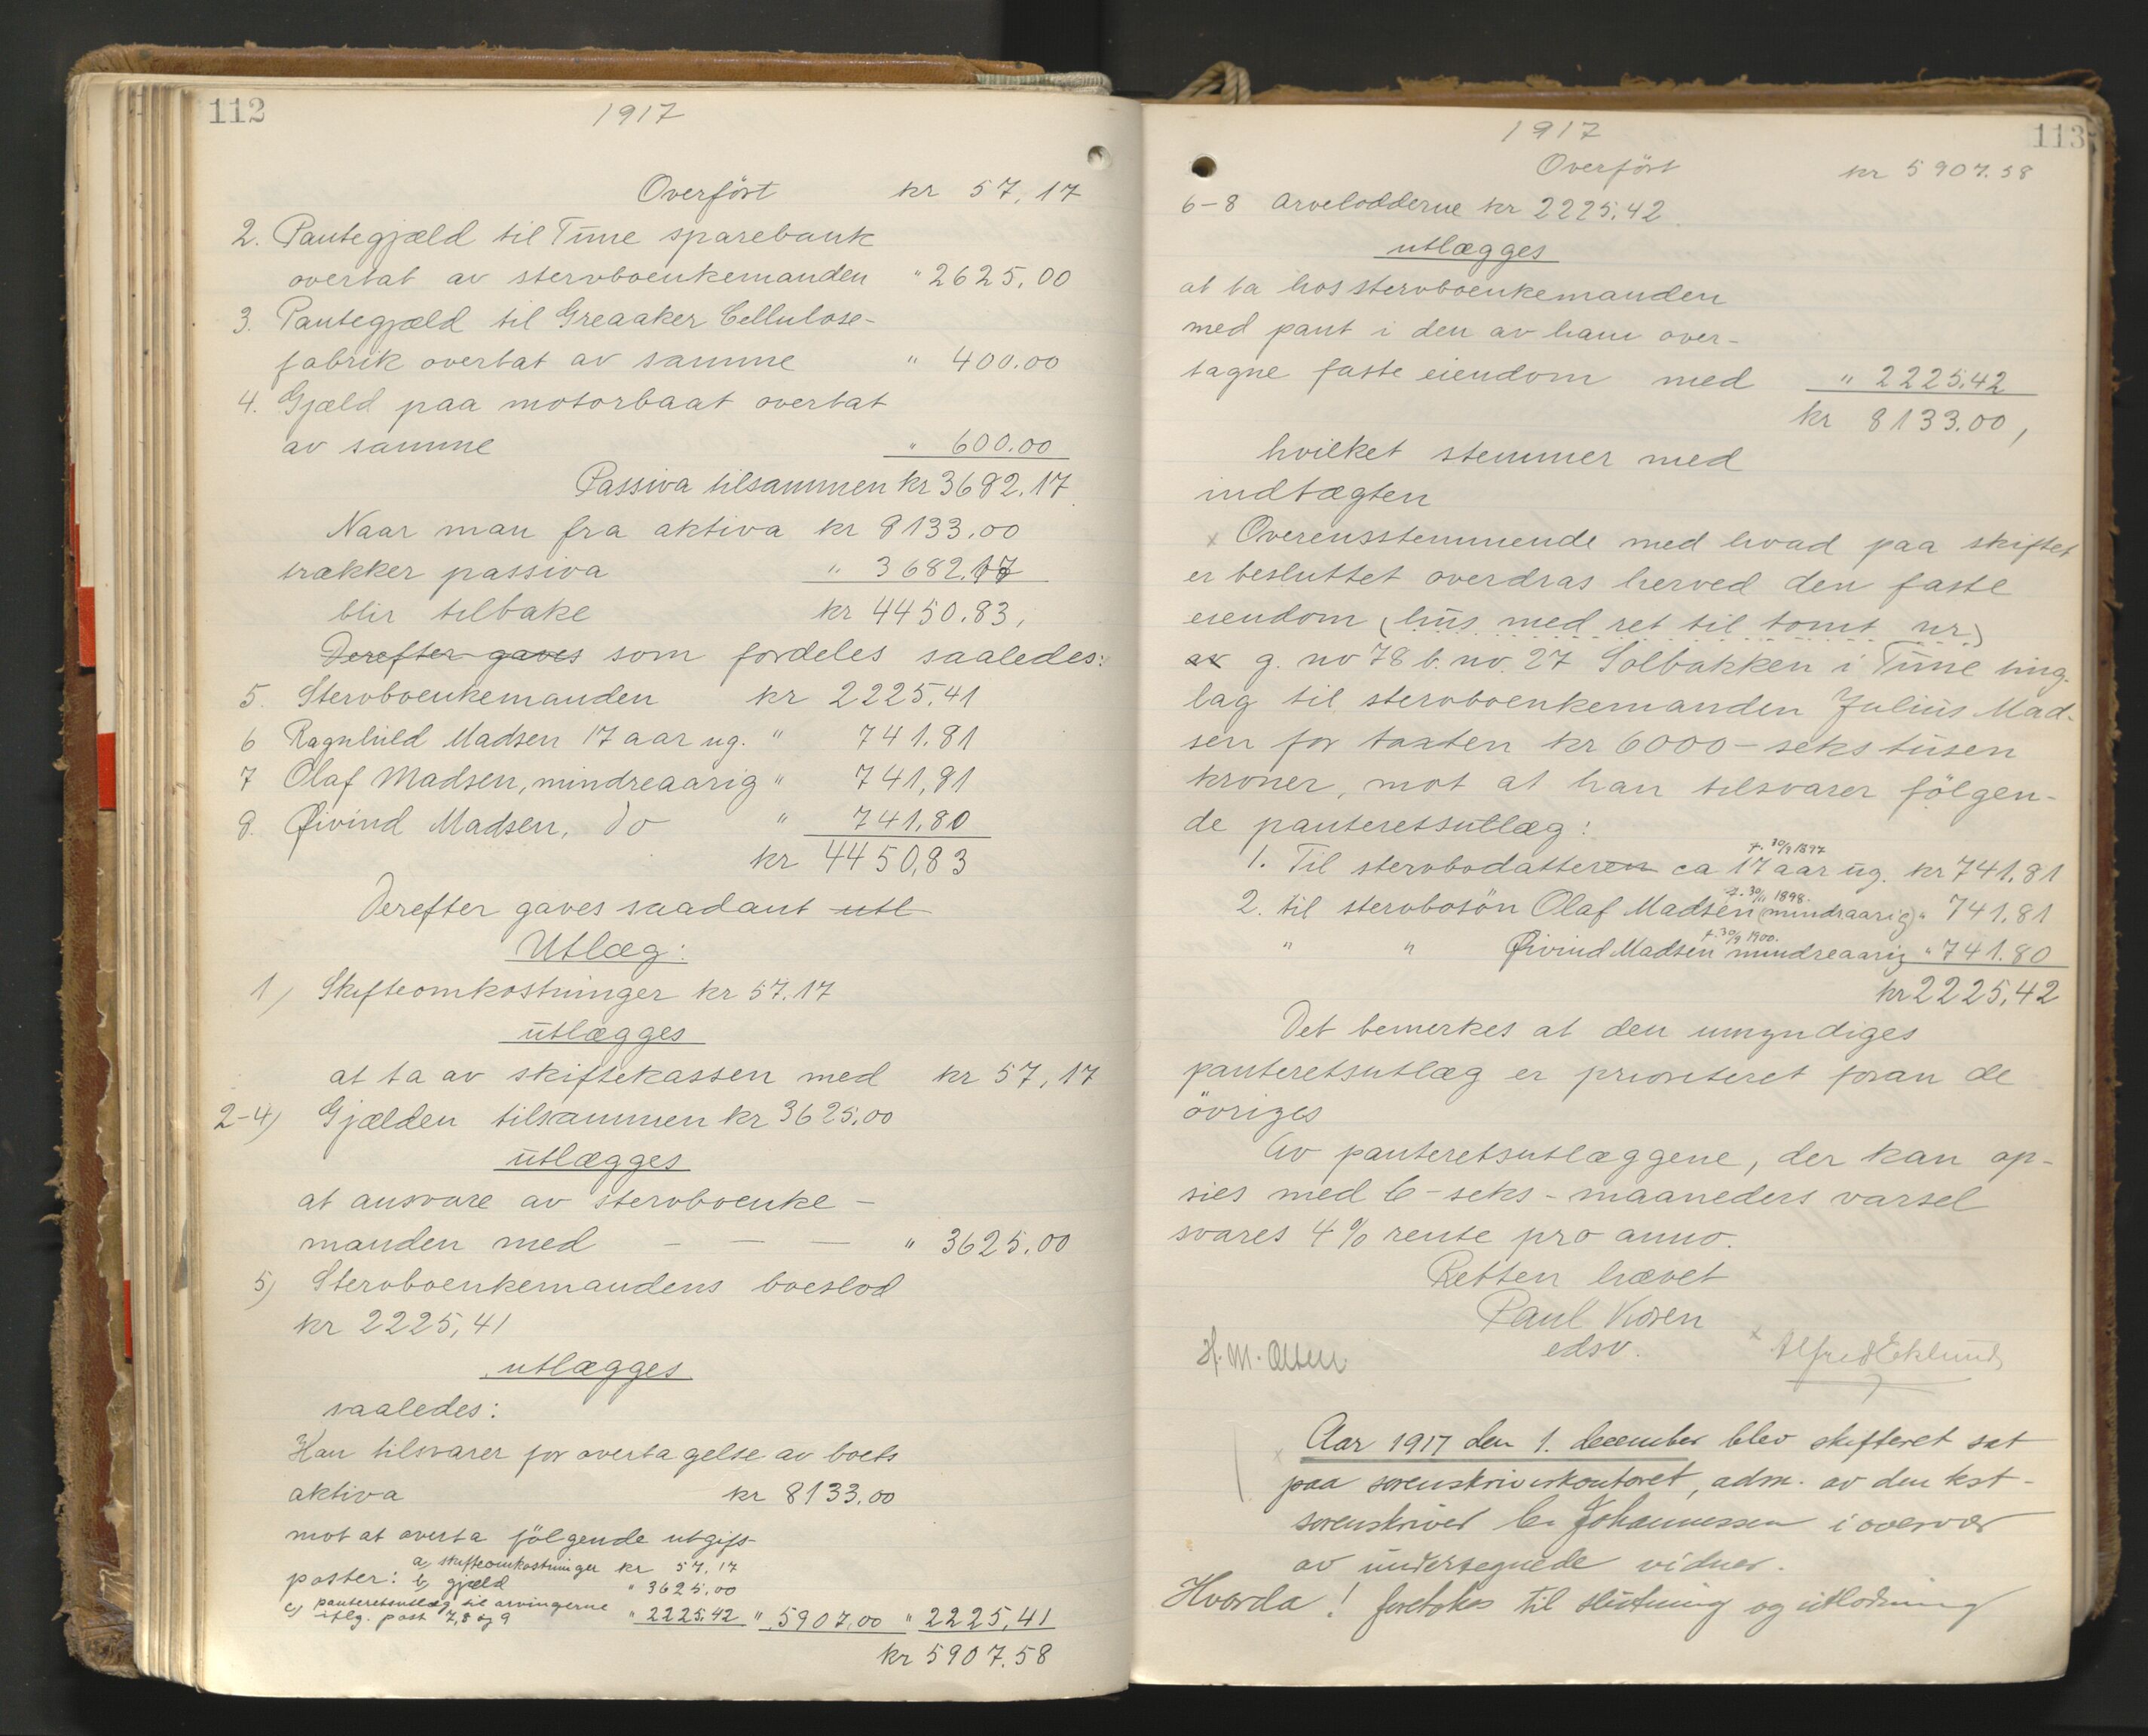 112
1917
Overført kr 57,17
2. Pantegjæld til Tune sparebank
overtat av stervboenkemanden " 2625,00
3. Pantegjæld til Greaaker Cellulose-
fabrik overtat av samme " 400.00
4. Gjæld paa motorbaat overtat
av samme " 600.00
Passiva tilsammen kr 3682.17
Naar man fra aktiva kr 8133,00
trækker passiva " 3682.17
blir tilbake kr 4450.83,
Derefter gaves som fordeles saaledes:
5. Stervboenkemanden kr 2225,41
6 Ragnhild Madsen 17 aar ug. " 741.81
7 Olaf Madsen, mindreaarig " 741,81
8. Øivind Madsen, do " 741,80
kr 4450,83
Derefter gaves saadant utl
Utlæg:
1) Skifteomkostninger kr 57.17
utlægges
at ta av skiftekassen med kr 57,17
2-4) Gjælden tilsammen kr 3625,00
utlægges
at ansvare av stervboenke-
manden med — — — " 3625,00
5) Stervboenkemandens boeslod
kr 2225,41
utlægges
saaledes:
Han tilsvarer for overtagelse av boets
aktiva kr 8133,00
mot at overta følgende utgifs-
poster: a, skifteomkostninger kr 57,17
b, gjæld " 3625,00
c, panteretsutlæg til arvingerne
iflg. post 7,8 og 9 " 2225,42 " 5907,00 " 2225,41
kr 5907.58
113
1917
Overført kr 5907.58
6-8 arvelodderne kr 2225,42
utlægges
at ta hos stervboenkemanden
med pant i den av ham over-
tagne faste eiendom med " 2225,42
kr 8133.00,
hvilket stemmer med
indtægten
x Overensstemmende med hvad paa skiftet
er besluttet overdras herved den faste
eiendom (hus med ret til tomt nr)
av g. no 78 b. no. 27 Solbakken i Tune ting-
lag til stervboenkemanden Julius Mad-
sen for taxten kr 6000 - seks tusen
kroner, mot at han tilsvarer følgen-
de panteretsutlæg:
f. 30/9 1897
1. Til stervbodatteren ca 17 aar ug. kr 741,81
f. 30/11 1898.
2. til stervbosøn Olaf Madsen (mindraarig) " 741,81
f. 30/9 1900.
" " Øivind Madsen mindreaarig " 741.80
kr 2225,42
Det bemerkes at den umyndiges
panteretsutlæg er prioriteret foran de
øvriges
Av panteretsutlæggene, der kan op-
sies med 6 - seks - maaneders varsel
svares 4% rente pro anno.
Retten hævet
Paul Koren
edsv.
H. M. Olsen x Alfred Eklund
x Aar 1917 den 1. december blev skifteret sat
paa sorenskriverkontoret, adm. av den kst-
sorenskriver C. Johannessen i overvær
av undertegnede vidner.
Hvorda! foretokes til slutning og utlodning